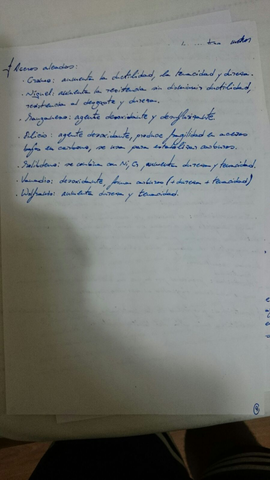 metros
Aceros aleados:
· Cromo: aumenta la ductilidad, la tenacidad y dureza.
· Níquel: aumenta la resistencia sin disminuir ductilidad,
resistencia al desgaste y dureza.
· Manganeso: agente desoxidante y desulfurante
· Silicio: agente desoxidante, produce fragilidad en aceros
bajos en carbono, se usan para estabilizar carburos.
· Molibdeno: se combina con Ni, Cr, aumenta dureza y tenacidad.
· Vanadio: desoxidante, forma carburos (+ dureza + tenacidad)
· Wolframio: aumenta dureza y tenacidad.